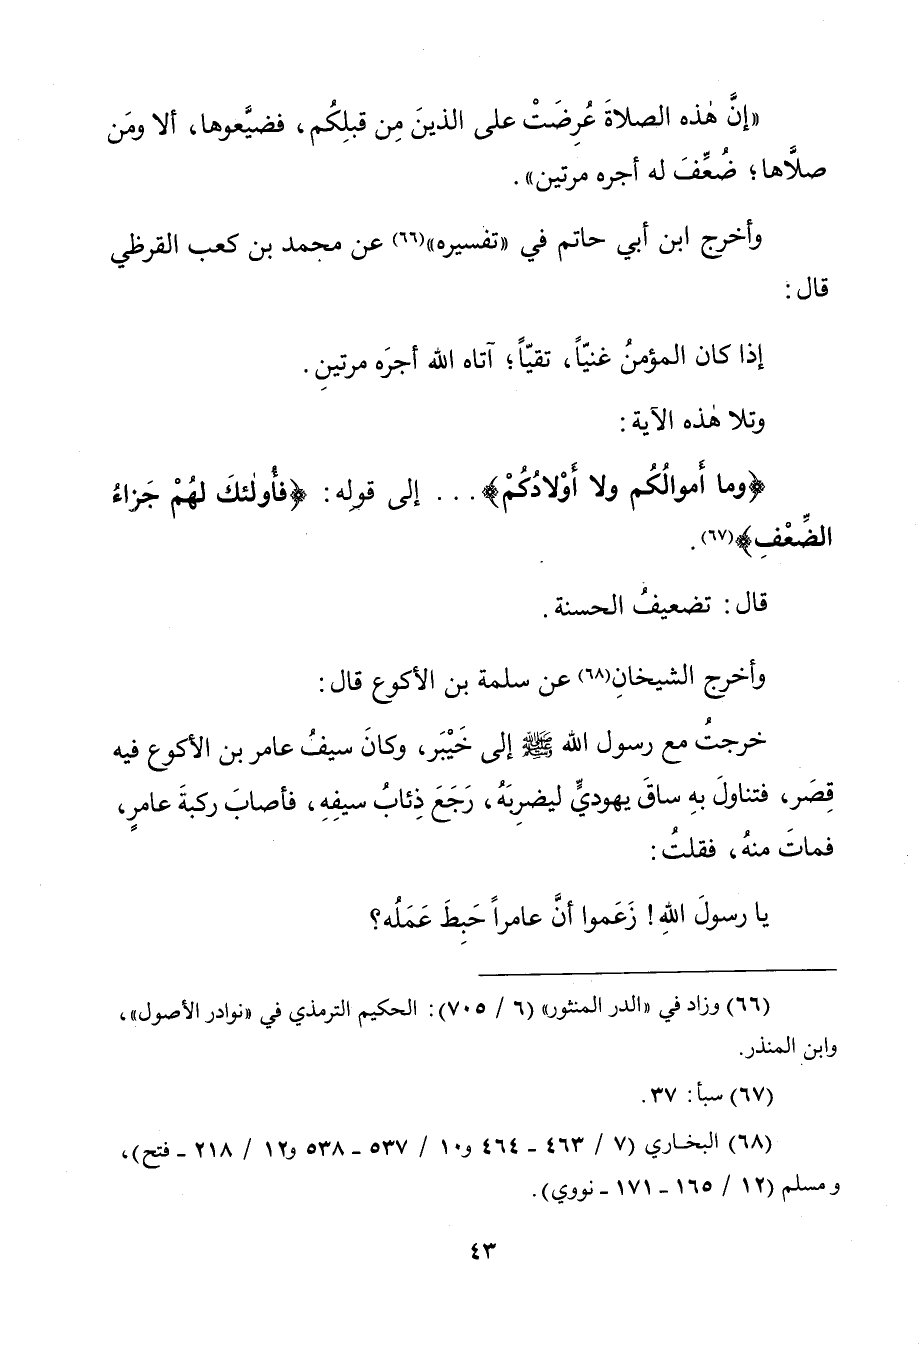 «إنَّ هٰذه الصلاةَ عُرِضَتْ على الذينَ مِن قبلِكُم، فضيَّعوها، ألا ومَن
صلَّاها؛ ضُعِّفَ له أجره مرتين».
وأخرج ابن أبي حاتم في «تفسيره»(٦٦) عن محمد بن كعب القرظي
قال:
إذا كان المؤمنُ غنيّاً، تقيّاً؛ آتاه الله أجرَه مرتينِ.
وتلا هٰذه الآية:
﴿وما أَموالُكُم ولا أَوْلادُكُمْ﴾... إلى قولِه: ﴿فأُولٰئكَ لهُمْ جَزاءُ
الضِّعْفِ﴾(٦٧).
قال: تضعيفُ الحسنة.
وأخرج الشيخانِ(٦٨) عن سلمة بن الأكوع قال:
خرجتُ مع رسول الله ﷺ إلى خَيْبَر، وكانَ سيفُ عامر بن الأكوع فيه
قِصَر، فتناولَ بهِ ساقَ يهوديٍّ ليضرِبَهُ، رَجَعَ ذِئابُ سيفِهِ، فأصابَ ركبةَ عامرٍ،
فماتَ منهُ، فقلتُ:
يا رسولَ اللهِ! زَعَموا أنَّ عامراً حَبِطَ عَمَلُه؟
(٦٦) وزاد في «الدر المنثور» (٦ / ٧٠٥): الحكيم الترمذي في «نوادر الأصول»،
وابن المنذر.
(٦٧) سبأ: ٣٧.
(٦٨) البخاري (٧ / ٤٦٣ ـ ٤٦٤ و١٠ / ٥٣٧ ـ ٥٣٨ و١٢ / ٢١٨ ـ فتح)،
ومسلم (١٢ / ١٦٥ ـ ١٧١ ـ نووي).
٤٣